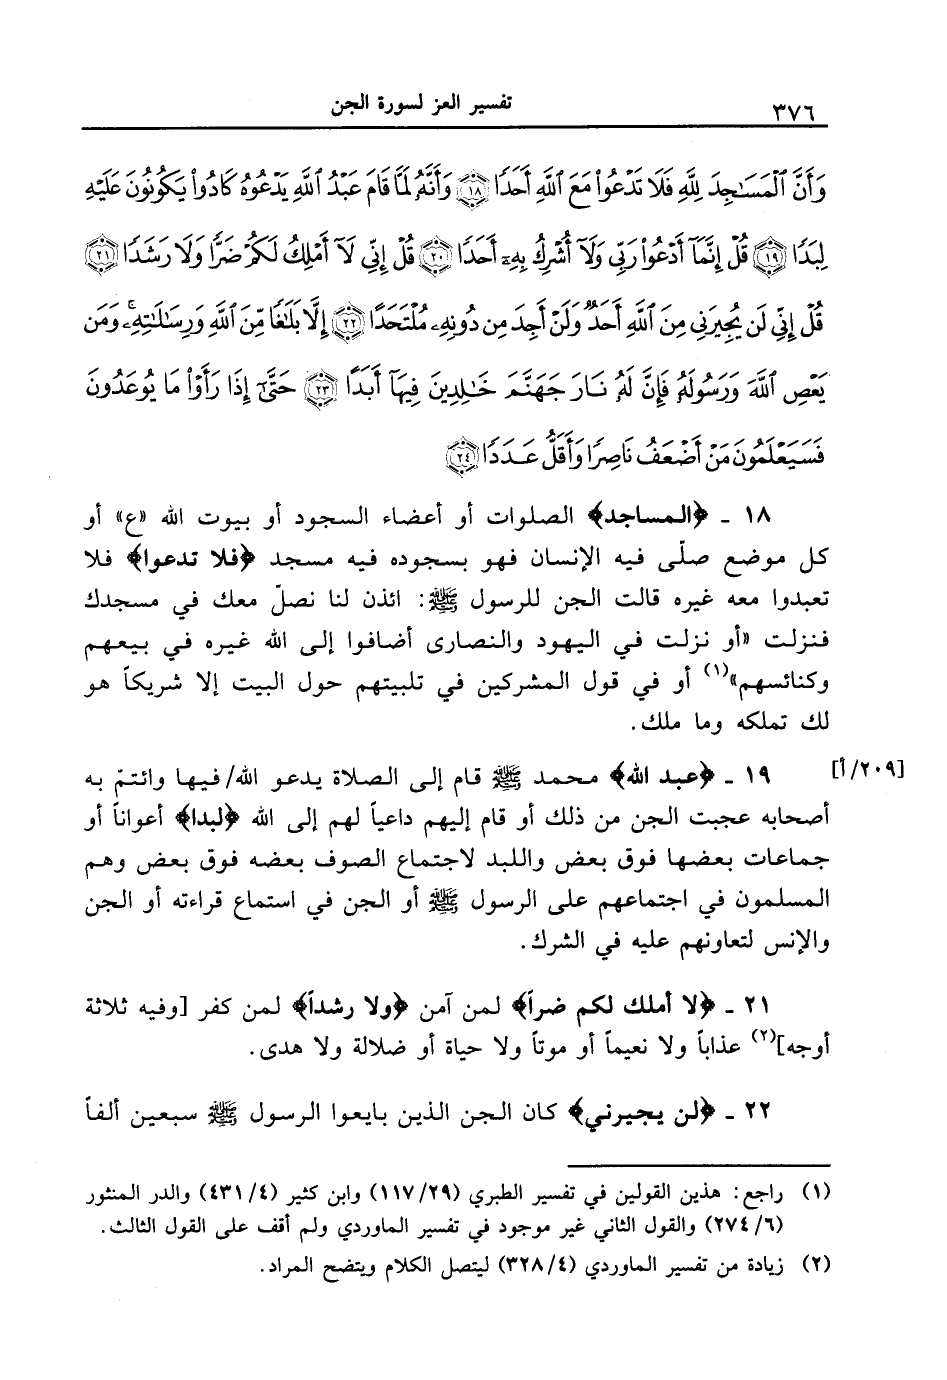 ٣٧٦
تفسير العز لسورة الجن
وَأَنَّ ٱلْمَسَـٰجِدَ لِلَّهِ فَلَا تَدْعُوا۟ مَعَ ٱللَّهِ أَحَدًا ﴿١٨﴾ وَأَنَّهُۥ لَمَّا قَامَ عَبْدُ ٱللَّهِ يَدْعُوهُ كَادُوا۟ يَكُونُونَ عَلَيْهِ
لِبَدًا ﴿١٩﴾ قُلْ إِنَّمَآ أَدْعُوا۟ رَبِّى وَلَآ أُشْرِكُ بِهِۦٓ أَحَدًا ﴿٢٠﴾ قُلْ إِنِّى لَآ أَمْلِكُ لَكُمْ ضَرًّا وَلَا رَشَدًا ﴿٢١﴾
قُلْ إِنِّى لَن يُجِيرَنِى مِنَ ٱللَّهِ أَحَدٌ وَلَنْ أَجِدَ مِن دُونِهِۦ مُلْتَحَدًا ﴿٢٢﴾ إِلَّا بَلَـٰغًا مِّنَ ٱللَّهِ وَرِسَـٰلَـٰتِهِۦ ۚ وَمَن
يَعْصِ ٱللَّهَ وَرَسُولَهُۥ فَإِنَّ لَهُۥ نَارَ جَهَنَّمَ خَـٰلِدِينَ فِيهَآ أَبَدًا ﴿٢٣﴾ حَتَّىٰٓ إِذَا رَأَوْا۟ مَا يُوعَدُونَ
فَسَيَعْلَمُونَ مَنْ أَضْعَفُ نَاصِرًا وَأَقَلُّ عَدَدًا ﴿٢٤﴾
١٨ ـ ﴿المساجد﴾ الصلوات أو أعضاء السجود أو بيوت الله «ع» أو
كل موضع صلّى فيه الإنسان فهو بسجوده فيه مسجد ﴿فلا تدعوا﴾ فلا
تعبدوا معه غيره قالت الجن للرسول ﷺ: ائذن لنا نصلّ معك في مسجدك
فنزلت «أو نزلت في اليهود والنصارى أضافوا إلى الله غيره في بيعهم
وكنائسهم»(١) أو في قول المشركين في تلبيتهم حول البيت إلا شريكاً هو
لك تملكه وما ملك.
[٢٠٩/أ] ١٩ ـ ﴿عبد الله﴾ محمد ﷺ قام إلى الصلاة يدعو الله/ فيها وائتمّ به
أصحابه عجبت الجن من ذلك أو قام إليهم داعياً لهم إلى الله ﴿لبدا﴾ أعواناً أو
جماعات بعضها فوق بعض واللبد لاجتماع الصوف بعضه فوق بعض وهم
المسلمون في اجتماعهم على الرسول ﷺ أو الجن في استماع قراءته أو الجن
والإنس لتعاونهم عليه في الشرك.
٢١ ـ ﴿لا أملك لكم ضراً﴾ لمن آمن ﴿ولا رشداً﴾ لمن كفر [وفيه ثلاثة
أوجه](٢) عذاباً ولا نعيماً أو موتاً ولا حياة أو ضلالة ولا هدى.
٢٢ ـ ﴿لن يجيرني﴾ كان الجن الذين بايعوا الرسول ﷺ سبعين ألفاً
(١) راجع: هذين القولين في تفسير الطبري (١١٧/٢٩) وابن كثير (٤٣١/٤) والدر المنثور
(٢٧٤/٦) والقول الثاني غير موجود في تفسير الماوردي ولم أقف على القول الثالث.
(٢) زيادة من تفسير الماوردي (٣٢٨/٤) ليتصل الكلام ويتضح المراد.